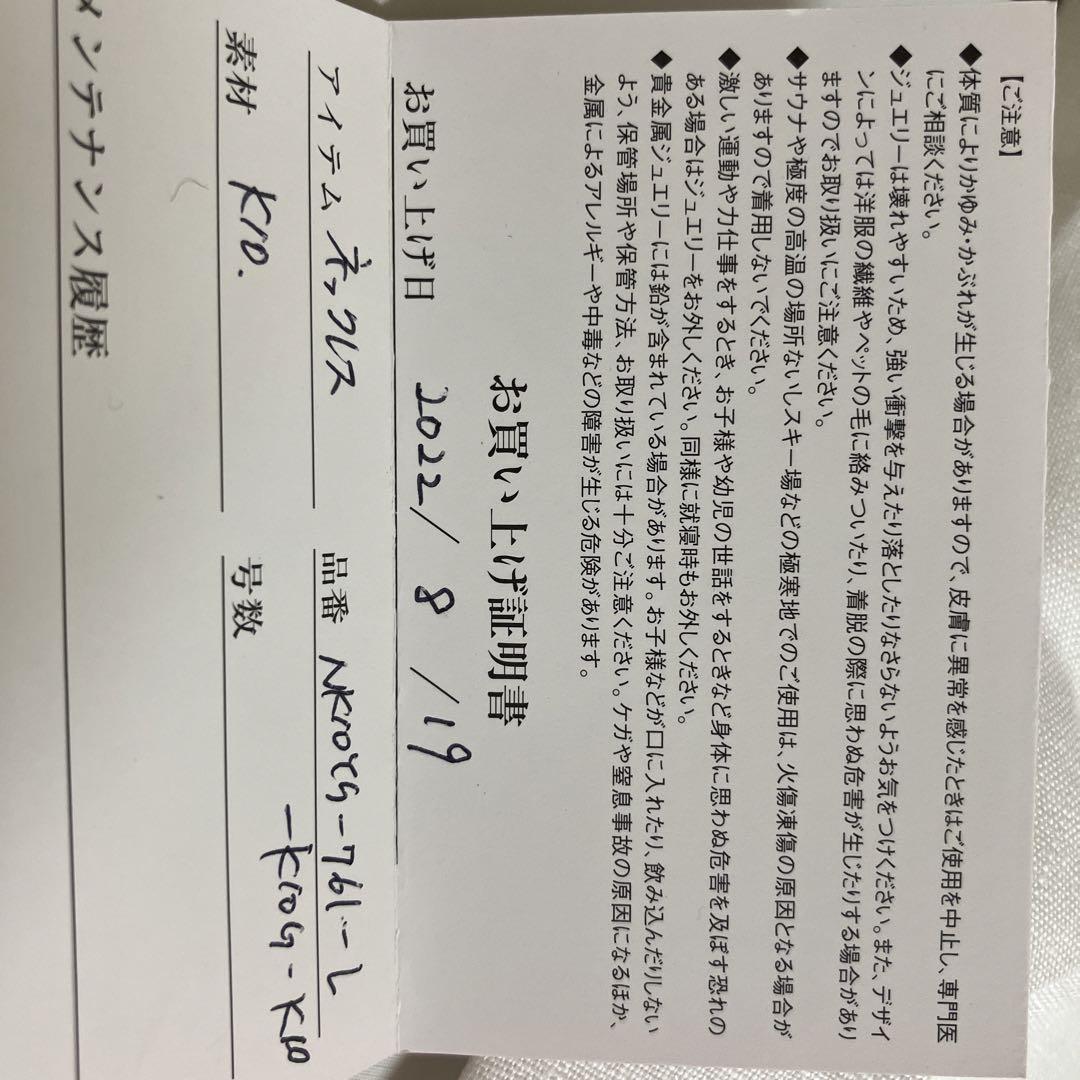 【ご注意】
◆体質によりかゆみ・かぶれが生じる場合がありますので、皮膚に異常を感じたときはご使用を中止し、専門医
にご相談ください。
◆ジュエリーは壊れやすいため、強い衝撃を与えたり落としたりなさらないようお気をつけください。また、デザイ
ンによっては洋服の繊維やペットの毛に絡みついたり、着脱の際に思わぬ危害が生じたりする場合があり
ますのでお取り扱いにご注意ください。
◆サウナや極度の高温の場所ないしスキー場などの極寒地でのご使用は、火傷凍傷の原因となる場合が
ありますので着用しないでください。
◆激しい運動や力仕事をするとき、お子様や幼児の世話をするときなど身体に思わぬ危害を及ぼす恐れの
ある場合はジュエリーをお外しください。同様に就寝時もお外しください。
◆貴金属ジュエリーには鉛が含まれている場合があります。お子様などが口に入れたり、飲み込んだりしない
よう、保管場所や保管方法、お取り扱いには十分ご注意ください。ケガや窒息事故の原因になるほか、
金属によるアレルギーや中毒などの障害が生じる危険があります。
お買い上げ証明書
お買い上げ日 2022/8/19
アイテム ネックレス 品番 NK10YG-761-L
-K10G-K10
素材 K10. 号数
メンテナンス履歴